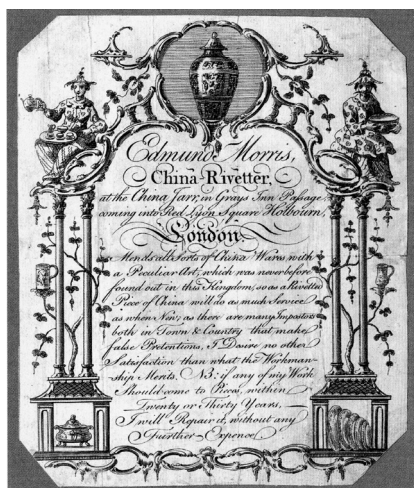 Edmund Morris,
China-Rivetter,
at the China Jarr, in Grays Inn Passage,
coming into Red Lyon Square Holbourn,
London.
Mends all Sorts of China Ware with
a Peculiar Art, which was never before
found out in this Kingdom, so as a Rivetted
Piece of China will do as much Service
as when New; as there are many Impostors
both in Town & Country that make
false Pretentions, I Desire no other
Satisfaction than what the Workman-
ship Merits. NB: if any of my Work
Should come to Pieces, within
Twenty or Thirty Years,
I will Repair it, without any
Further Expence.